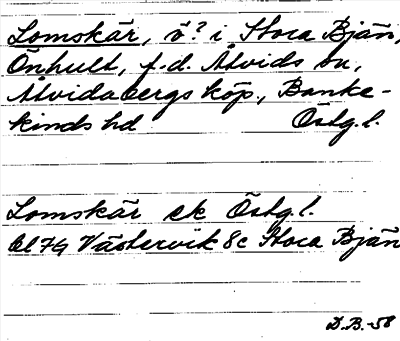 Lomskär, ö? i Stora Bjän,
Önhult, f.d. Åtvids sn,
Åtvidabergs köp., Banke-
kinds hd Östg.l.
Lomskär ek Östg.l.
Bl 74 Västervik 8c Stora Bjän
D.B.-58